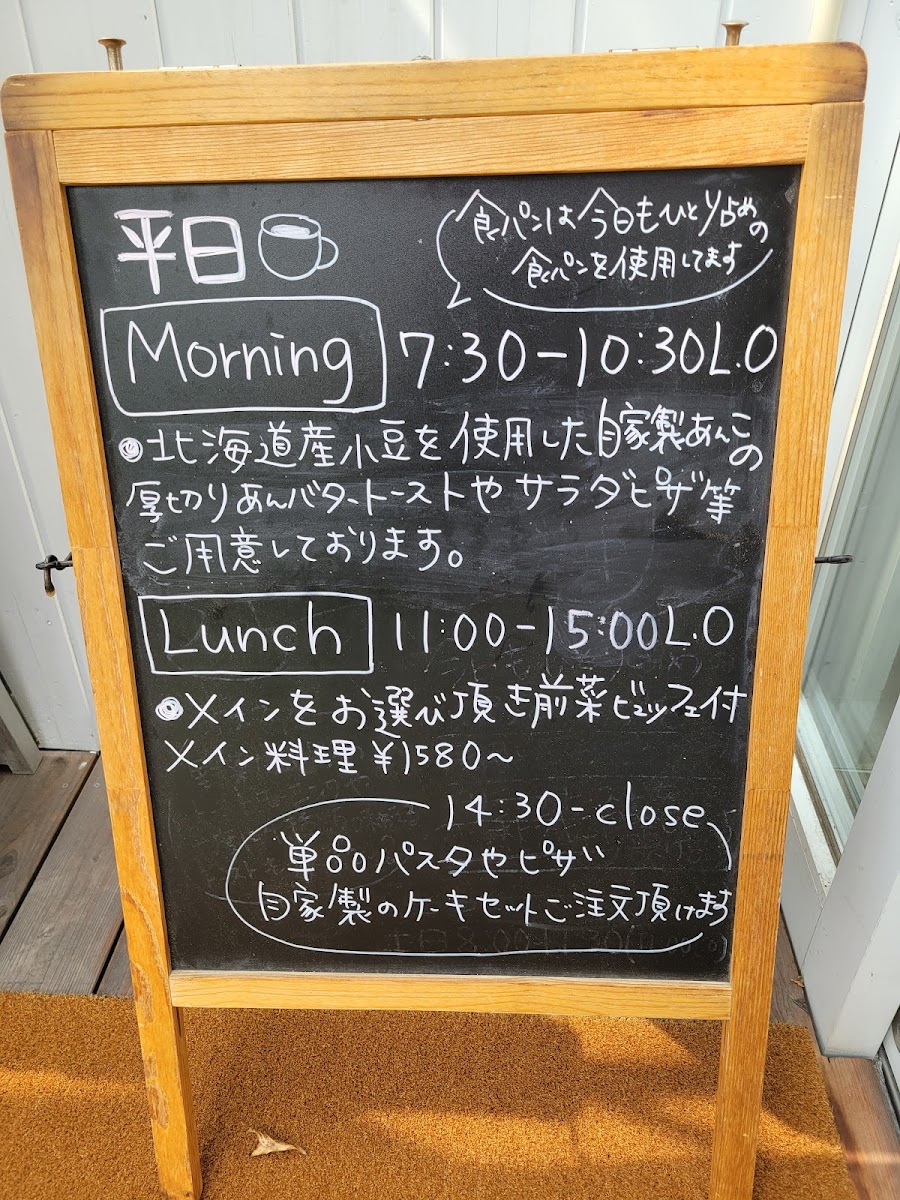 平日
食パンは今日もひとり占めの
食パンを使用してます
Morning 7:30-10:30L.O
●北海道産小豆を使用した自家製あんこの
厚切りあんバタートーストやサラダピザ等
ご用意しております。
Lunch 11:00-15:00L.O
●メインをお選び頂き前菜ビュッフェ付
メイン料理¥1580～
14:30-close
単品パスタやピザ
自家製のケーキセットご注文頂けます